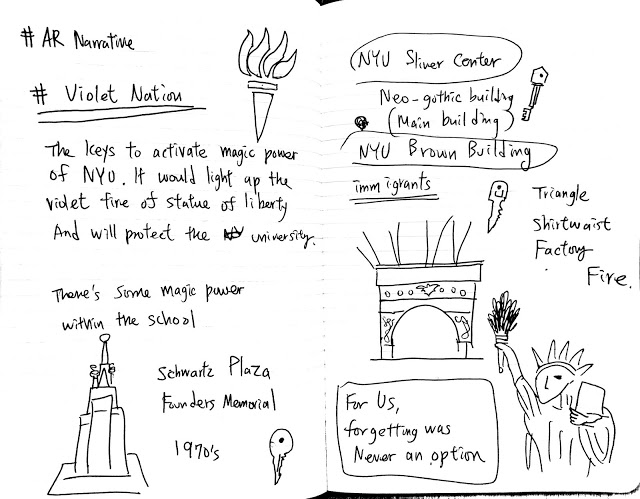 # AR Narrative
# Violet Nation
The keys to activate magic power
of NYU. It would light up the
violet fire of statue of liberty
And will protect the university.
There's some magic power
within the school
Schwartz Plaza
Founders Memorial
1970's
NYU Sliver Center
Neo-gothic building
(Main building)
NYU Brown Building
immigrants
Triangle
Shirtwaist
Factory
Fire.
For Us,
forgetting was
Never an option